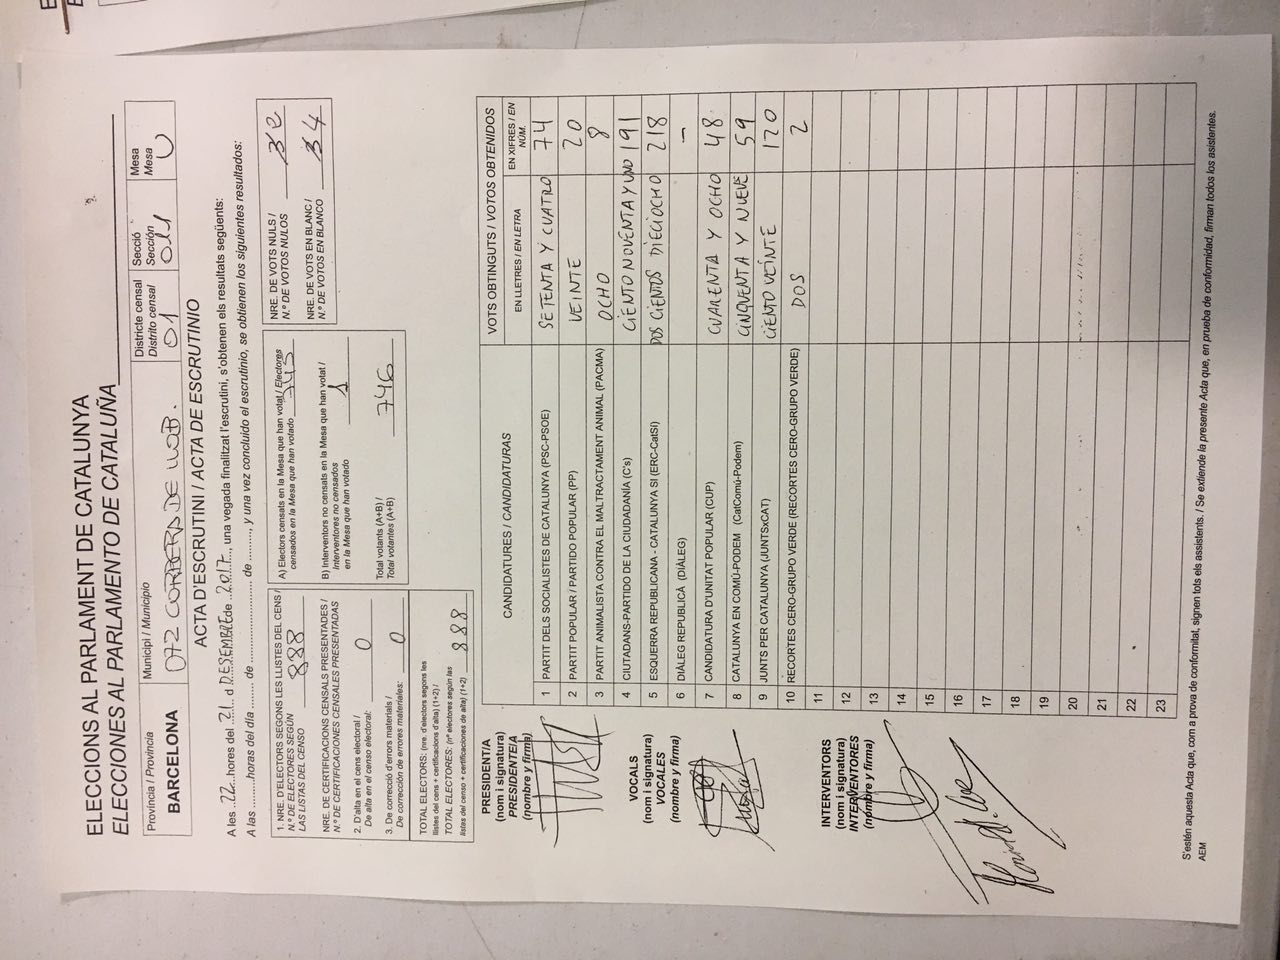 ELECCIONS AL PARLAMENT DE CATALUNYA
ELECCIONES AL PARLAMENTO DE CATALUÑA
Província / Provincia
BARCELONA
Municipi / Municipio
072 CORBERA DE LLOB.
Districte censal
Distrito censal
01
Secció
Sección
011
Mesa
Mesa
U
ACTA D'ESCRUTINI / ACTA DE ESCRUTINIO
A les ..22...hores del .21. d DESEMBRE de ..2017..., una vegada finalitzat l'escrutini, s'obtenen els resultats següents:
A las ..........horas del día ........ de ........................ de ........., y una vez concluido el escrutinio, se obtienen los siguientes resultados:
1. NRE. D'ELECTORS SEGONS LES LLISTES DEL CENS /
N.º DE ELECTORES SEGÚN
LAS LISTAS DEL CENSO 888
NRE. DE CERTIFICACIONS CENSALS PRESENTADES /
N.º DE CERTIFICACIONES CENSALES PRESENTADAS
2. D'alta en el cens electoral /
De alta en el censo electoral: 0
3. De correcció d'errors materials /
De corrección de errores materiales: 0
TOTAL ELECTORS: (nre. d'electors segons les
llistes del cens + certificacions d'alta) (1+2) /
TOTAL ELECTORES: (nº electores según las
listas del censo + certificaciones de alta) (1+2) 888
A) Electors censats en la Mesa que han votat / Electores
censados en la Mesa que han votado 745
B) Interventors no censats en la Mesa que han votat /
Interventores no censados
en la Mesa que han votado 1
Total votants (A+B) /
Total votantes (A+B) 746
NRE. DE VOTS NULS /
N.º DE VOTOS NULOS
NRE. DE VOTS EN BLANC /
N.º DE VOTOS EN BLANCO
CANDIDATURES / CANDIDATURAS
VOTS OBTINGUTS / VOTOS OBTENIDOS
EN LLETRES / EN LETRA
EN XIFRES / EN NÚM.
1 PARTIT DELS SOCIALISTES DE CATALUNYA (PSC-PSOE) SETENTA Y CUATRO 74
2 PARTIT POPULAR / PARTIDO POPULAR (PP) VEINTE 20
3 PARTIT ANIMALISTA CONTRA EL MALTRACTAMENT ANIMAL (PACMA) OCHO 8
4 CIUTADANS-PARTIDO DE LA CIUDADANÍA (C's) CIENTO NOVENTA Y UNO 191
5 ESQUERRA REPUBLICANA - CATALUNYA SI (ERC-CatSí) DOS CIENTOS DIECIOCHO 218
6 DIÀLEG REPUBLICÀ (DIÀLEG) –
7 CANDIDATURA D'UNITAT POPULAR (CUP) CUARENTA Y OCHO 48
8 CATALUNYA EN COMÚ-PODEM (CatComú-Podem) CINQUENTA Y NUEVE 59
9 JUNTS PER CATALUNYA (JUNTSxCAT) CIENTO VEINTE 120
10 RECORTES CERO-GRUPO VERDE (RECORTES CERO-GRUPO VERDE) DOS 2
11
12
13
14
15
16
17
18
19
20
21
22
23
PRESIDENT/A
(nom i signatura)
PRESIDENTE/A
(nombre y firma)
VOCALS
(nom i signatura)
VOCALES
(nombre y firma)
INTERVENTORS
(nom i signatura)
INTERVENTORES
(nombre y firma)
S'estén aquesta Acta que, com a prova de conformitat, signen tots els assistents. / Se extiende la presente Acta que, en prueba de conformidad, firman todos los asistentes.
AEM